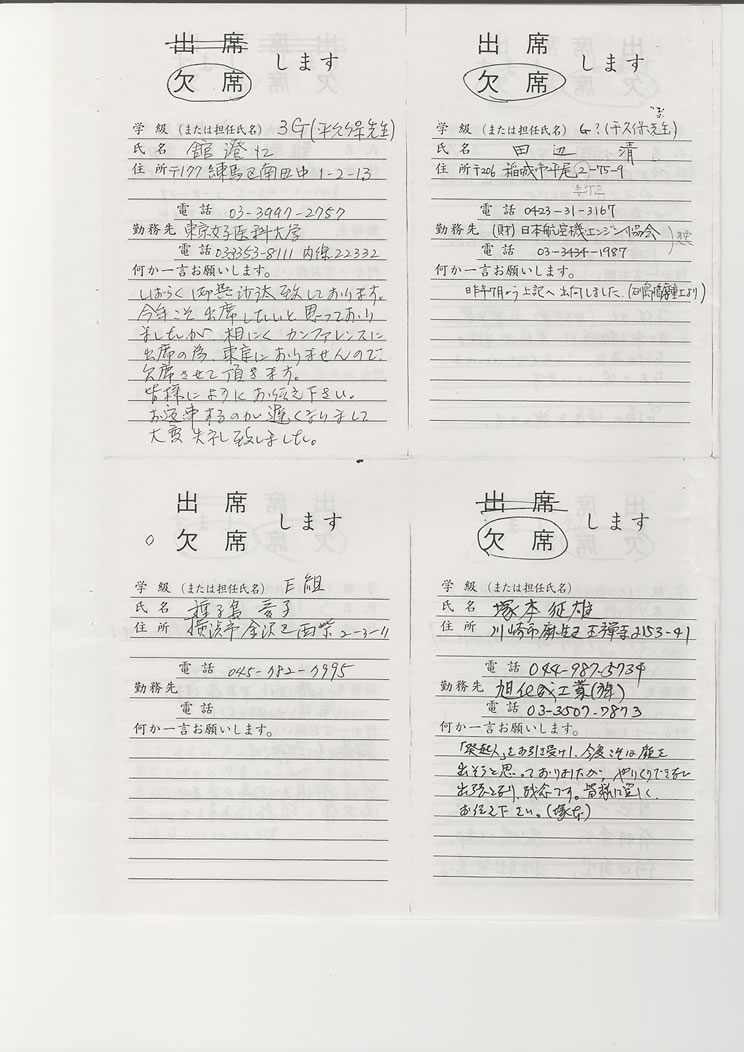 出席
欠席
します
学級（または担任氏名） 3G(平久保先生)
氏名 舘 澄仁
住所 〒177 練馬区南田中 1-2-13
電話 03-3997-2757
勤務先 東京女子医科大学
電話 033353-8111 内線22332
何か一言お願いします。
しばらく御無沙汰致しております。
今年こそ出席したいと思っており
ましたが、相にく カンファレンスに
出席の為、東京におりませんので、
欠席させて頂きます。
皆様によろしくお伝え下さい。
お返事するのが遅くなりまして
大変失礼致しました。
出席
欠席
します
学級（または担任氏名） G?(平久保先生)
氏名 田辺 清
住所 〒206 稲城市平尾2-75-9
電話 0423-31-3167
勤務先 (財)日本航空機エンジン協会
電話 03-3434-1987
何か一言お願いします。
昨年7月から上記へ出向しました。(石川島播磨重工より)
出席
欠席
します
学級（または担任氏名） E組
氏名 愛子
住所 横浜市金沢区西柴2-3-11
電話 045-782-7995
勤務先
電話
何か一言お願いします。
出席
欠席
します
学級（または担任氏名）
氏名 塚本征雄
住所 川崎市麻生区王禅寺2153-41
電話 044-987-5734
勤務先 旭化成工業(株)
電話 03-3507-7873
何か一言お願いします。
「発起人」をお引き受けし、今度こそは顔を
出そうと思っておりましたが、やりくりできない
出張となり、残念です。皆様に宜しく
お伝え下さい。(塚本)